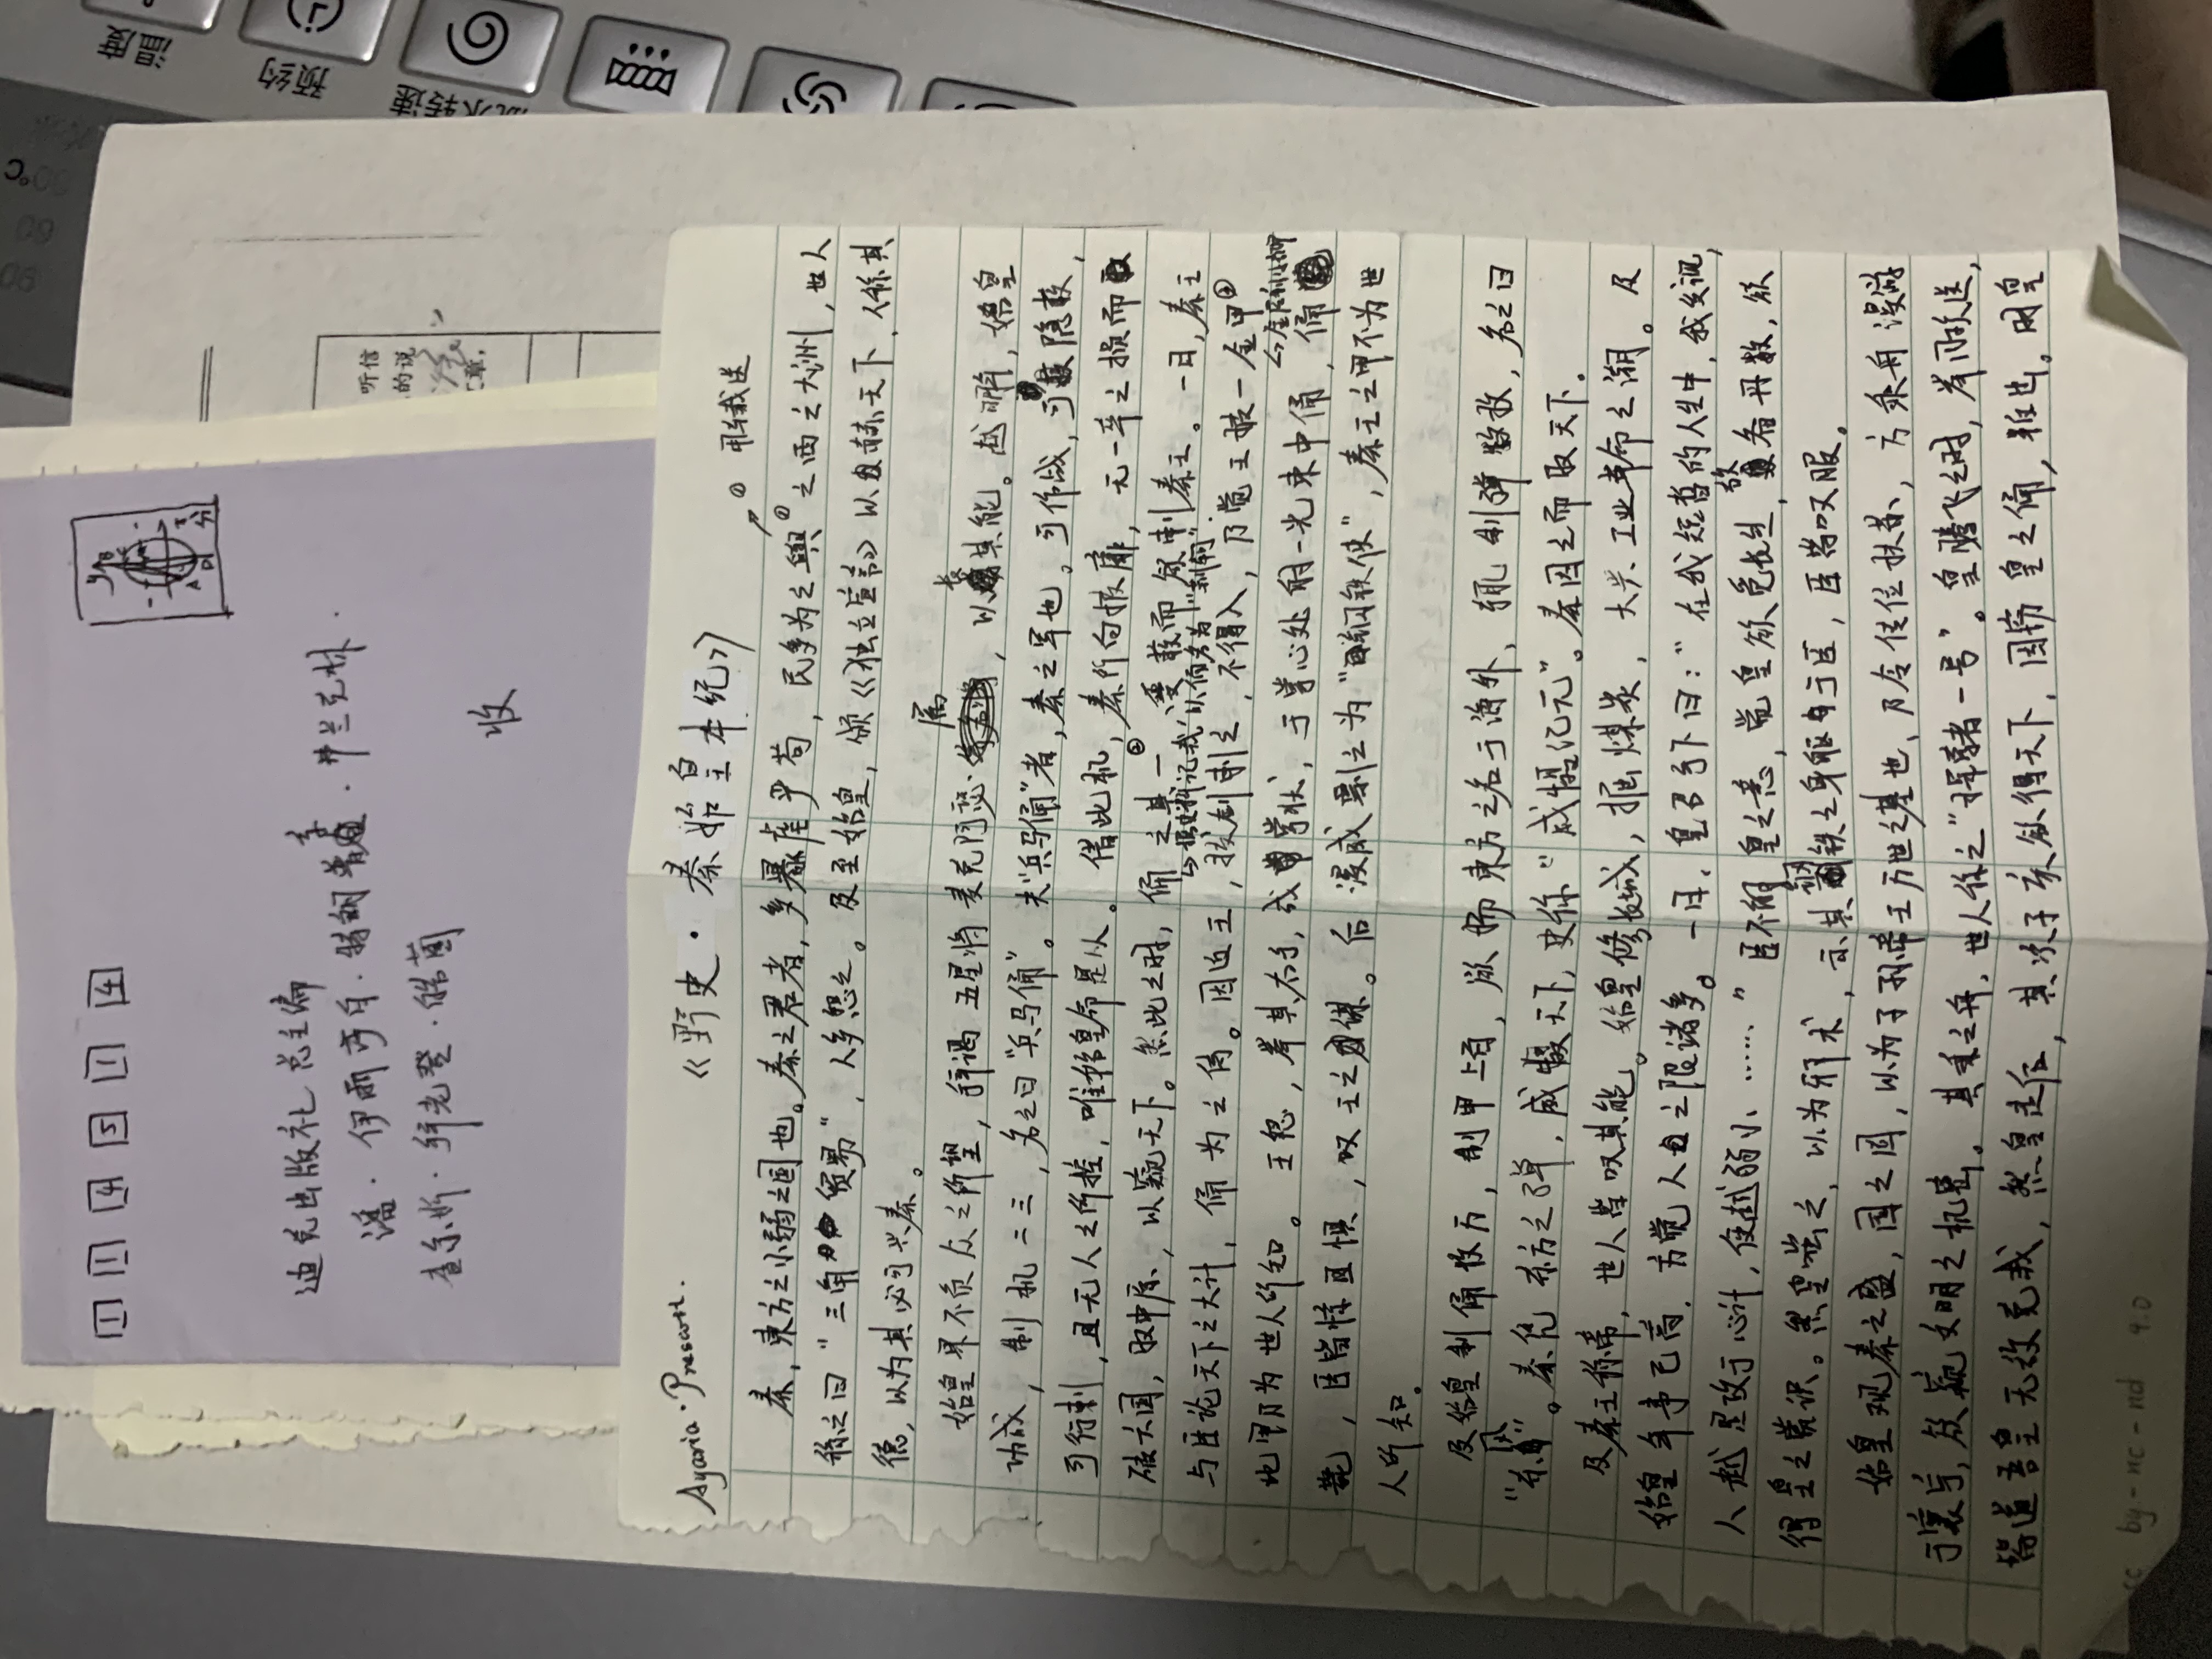 1 1 4 5 1 4
y B
A D 分
迪克出版社 总主编
潘·伊丽莎白·特朗普·弗兰克林·
查尔斯·拜老登·皓茵
收
温度
预约
转速
听信
的说
章,
Ayaria·Prescott.
《野史·秦始皇本纪》
① 用车载送
秦,東方之小弱之国也。秦之君者,多暴虐严苛,民多为之舆①之西之大洲,世人
称之曰“三角贸易”,人多怨之。及至始皇,颁《独立宣言》以赫天下,人称其
德,以为其必可兴秦。
始皇果不负众之所望,拜谒五星将麦克阿瑟·属,以长其能。越明年,始皇
功成,制机二三,名之曰“兵马俑”。夫“兵马俑”者,秦之军也。可作战,可隐蔽,
可行刺,且无人之所控,唯始皇命是从。借此机,秦所向披靡,无一卒之损而
破六国,取中原,以窥天下。然此之时,俑之其一②,受获而欲刺秦王。一日,秦王
↳据史料记载,以俑名为“荆轲”.
与臣论天下之大计,俑为之侍。因近王,拔剑刺之,不得入,乃觉王披一金甲③
↳金属制
此甲乃为世人所知。王怒,举其右手,成掌状,于掌心处射一光束中俑,俑
毙,臣皆惊且惧,叹王之谋。后漫威剽之为“钢铁侠”,秦王之甲不为世
人所知。
及始皇制俑数万,制甲上百,欲扬東方之名于海外,辄制弹数枚,名之曰
“东风”。秦凭东方之弹,威慑天下,史称“威慑纪元”。秦因之而取天下.
及秦王称帝,世人皆叹其能。始皇修长城,掘煤炭,大兴工业革命之潮。及
始皇年事已高,方觉人之限诸多。一日,皇召手下曰:“在我短暂的人生中,我发现,
人越是攻于心计,便越弱小……”臣不解皇之意,觉皇欲觅长生,故备丹数,欲
得皇之赏识。然皇嗤之,以为邪术,示其钢铁之身躯于臣,臣皆叹服。
始皇观秦之盛,国之固,以为子孙帝王万世之基也,乃令传位扶苏,方乘舟漫游
于寰宇,欲窥文明之机密。其乘之舟,世人称之“探索者一号”。皇腾飞之时,举国欢送,
皆道吾皇无敌克哉,然皇走后,其次子亥欲得天下,因窃皇之俑,推出。用皇
cc by-nc-nd 4.0